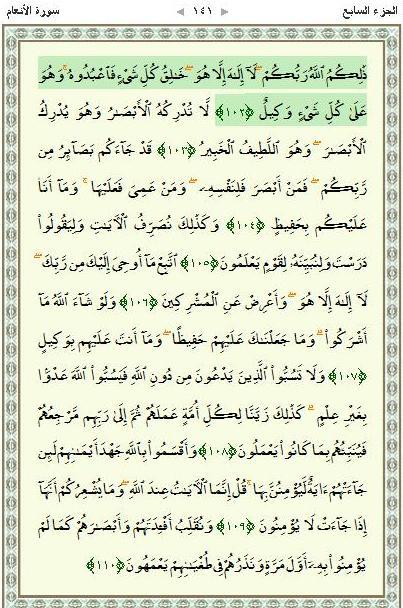 الجزء السابع ١٤١ سورة الأنعام
ذَٰلِكُمُ ٱللَّهُ رَبُّكُمْ ۖ لَآ إِلَٰهَ إِلَّا هُوَ ۖ خَٰلِقُ كُلِّ شَىْءٍ فَٱعْبُدُوهُ ۚ وَهُوَ
عَلَىٰ كُلِّ شَىْءٍ وَكِيلٌ ﴿١٠٢﴾ لَّا تُدْرِكُهُ ٱلْأَبْصَٰرُ وَهُوَ يُدْرِكُ
ٱلْأَبْصَٰرَ ۖ وَهُوَ ٱللَّطِيفُ ٱلْخَبِيرُ ﴿١٠٣﴾ قَدْ جَآءَكُم بَصَآئِرُ مِن
رَّبِّكُمْ ۖ فَمَنْ أَبْصَرَ فَلِنَفْسِهِۦ ۖ وَمَنْ عَمِىَ فَعَلَيْهَا ۚ وَمَآ أَنَا۠
عَلَيْكُم بِحَفِيظٍ ﴿١٠٤﴾ وَكَذَٰلِكَ نُصَرِّفُ ٱلْءَايَٰتِ وَلِيَقُولُوا۟
دَرَسْتَ وَلِنُبَيِّنَهُۥ لِقَوْمٍ يَعْلَمُونَ ﴿١٠٥﴾ ٱتَّبِعْ مَآ أُوحِىَ إِلَيْكَ مِن رَّبِّكَ ۖ
لَآ إِلَٰهَ إِلَّا هُوَ ۖ وَأَعْرِضْ عَنِ ٱلْمُشْرِكِينَ ﴿١٠٦﴾ وَلَوْ شَآءَ ٱللَّهُ مَآ
أَشْرَكُوا۟ ۗ وَمَا جَعَلْنَٰكَ عَلَيْهِمْ حَفِيظًا ۖ وَمَآ أَنتَ عَلَيْهِم بِوَكِيلٍ
﴿١٠٧﴾ وَلَا تَسُبُّوا۟ ٱلَّذِينَ يَدْعُونَ مِن دُونِ ٱللَّهِ فَيَسُبُّوا۟ ٱللَّهَ عَدْوًۢا
بِغَيْرِ عِلْمٍ ۗ كَذَٰلِكَ زَيَّنَّا لِكُلِّ أُمَّةٍ عَمَلَهُمْ ثُمَّ إِلَىٰ رَبِّهِم مَّرْجِعُهُمْ
فَيُنَبِّئُهُم بِمَا كَانُوا۟ يَعْمَلُونَ ﴿١٠٨﴾ وَأَقْسَمُوا۟ بِٱللَّهِ جَهْدَ أَيْمَٰنِهِمْ لَئِن
جَآءَتْهُمْ ءَايَةٌ لَّيُؤْمِنُنَّ بِهَا ۚ قُلْ إِنَّمَا ٱلْءَايَٰتُ عِندَ ٱللَّهِ ۖ وَمَا يُشْعِرُكُمْ أَنَّهَآ
إِذَا جَآءَتْ لَا يُؤْمِنُونَ ﴿١٠٩﴾ وَنُقَلِّبُ أَفْـِٔدَتَهُمْ وَأَبْصَٰرَهُمْ كَمَا لَمْ
يُؤْمِنُوا۟ بِهِۦٓ أَوَّلَ مَرَّةٍ وَنَذَرُهُمْ فِى طُغْيَٰنِهِمْ يَعْمَهُونَ ﴿١١٠﴾